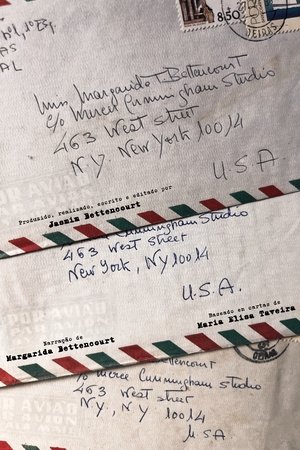 8,50
OEIRAS
AS
AL
Miss Margarida Bettencourt
c/o Merce Cunningham Studio
463 West street
N.Y. New York 10014
U.S.A
Produzido, realizado, escrito e editado por
Jasmin Bettencourt
Cunningham Studio
463 West street
New York, NY 10014
U.S.A.
Narração de
Margarida Bettencourt
Baseado em cartas de
Maria Elisa Taveira
tencourt
c/o Merce Cunningham Studio
463 West street
N.Y., N.Y 10014
USA